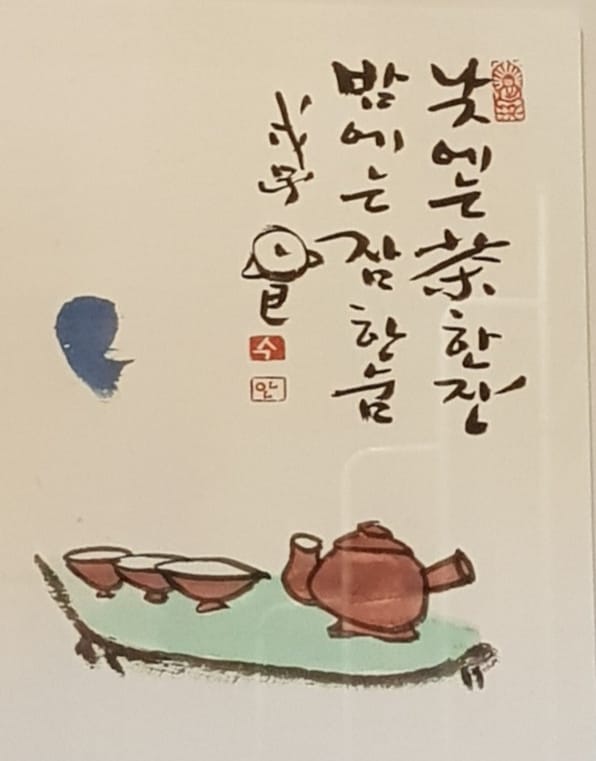 낮에는 茶 한잔
밤에는 잠 한숨
戊子
수
안